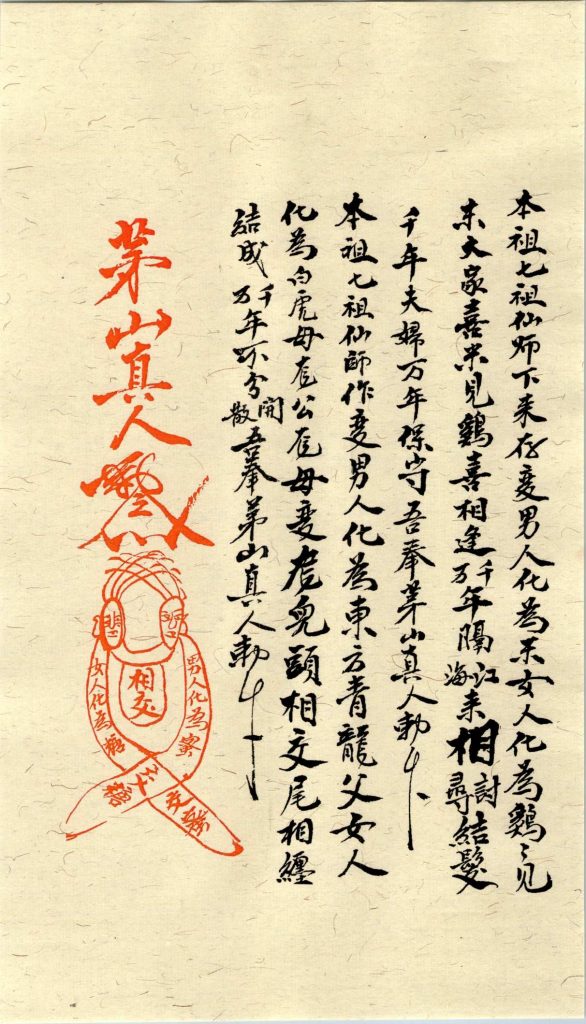 本祖七祖仙师下来存变男人化為米女人化為鷄〻见
米大家喜米見鷄喜相逢千万年隔江海来相討尋結髮
千年夫婦万年保守吾奉茅山真人勅令
本祖七祖仙師作变男人化為東方青龍父女人
化為白虎母虎公虎母变虎児頭相交尾相纏
結成千万年不分開散吾奉茅山真人勅令
茅山真人
相交
男人化為
女人化為糖